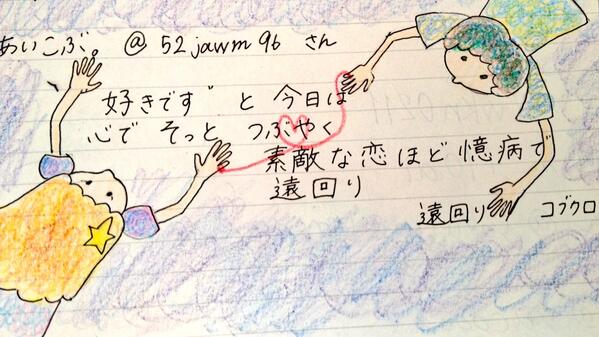 あいこぶ。 @52jawm96 さん
"好きです"と今日は
心でそっと つぶやく
素敵な恋ほど憶病で
遠回り
遠回り コブクロ